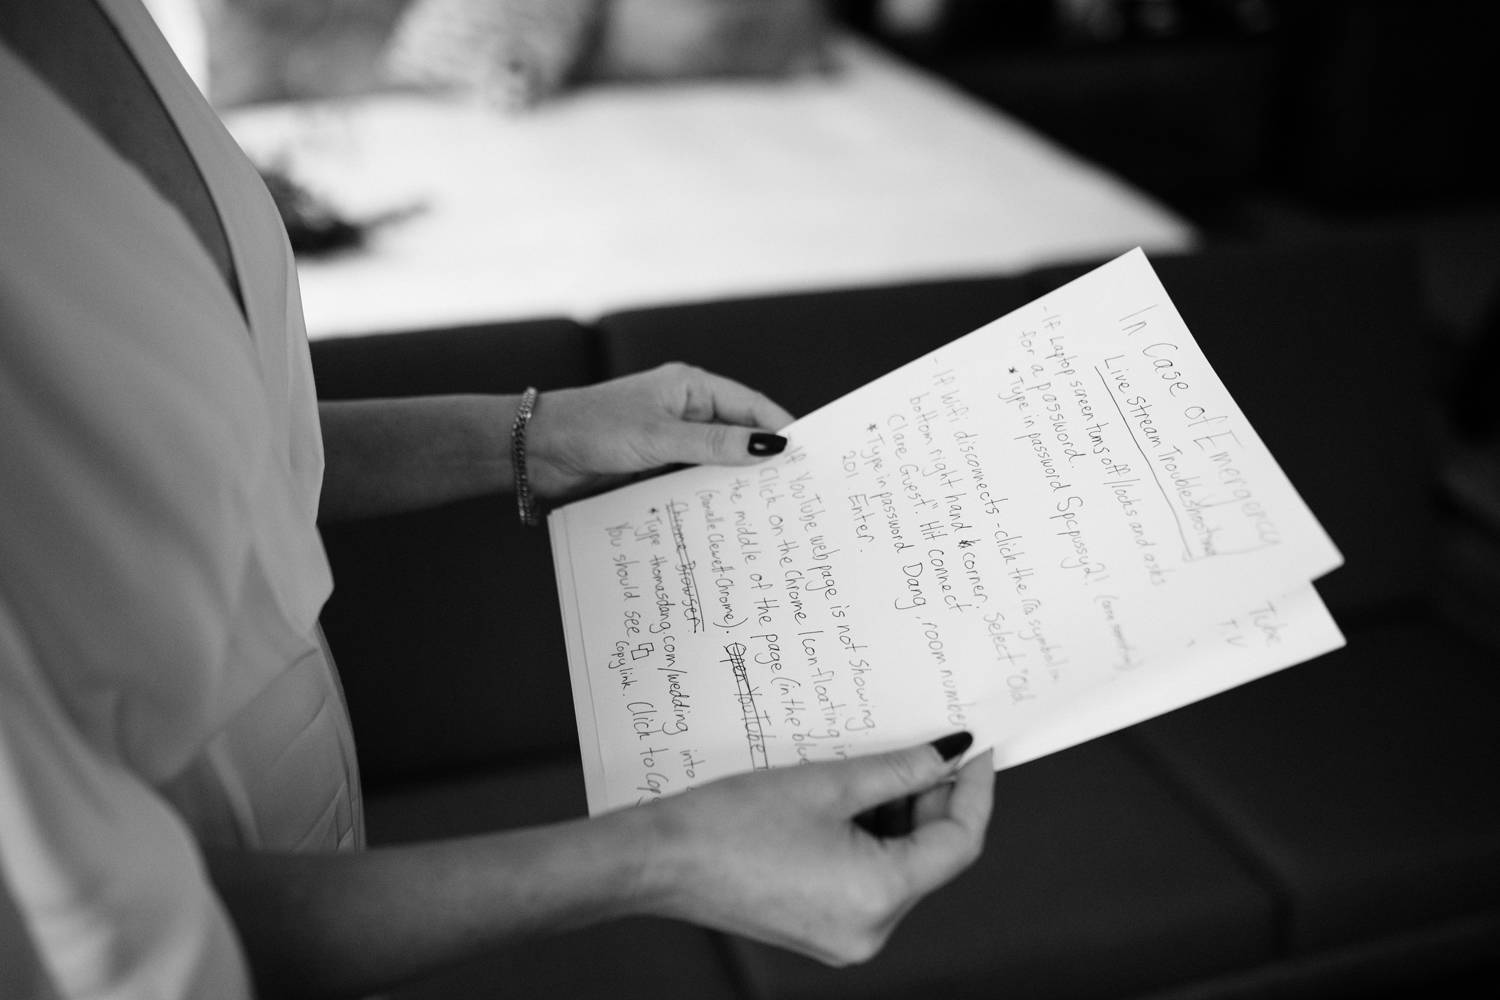 In Case of Emergency
Live Stream Troubleshooting
- If Laptop screen turns off/locks and asks
for a password.
* Type in password Spcpussy2!
- If Wifi disconnects - click the symbol in
bottom right hand corner. Select "Old
Clare Guest". Hit connect
* Type in password Dang, room number
201 Enter.
- If YouTube webpage is not showing.
Click on the Chrome Icon floating in
the middle of the page (in the blue
Chrome).
Chrome Browser.
Open YouTube
* Type thomasdang.com/wedding into
You should see
copy link. Click to Copy
Tube
TV